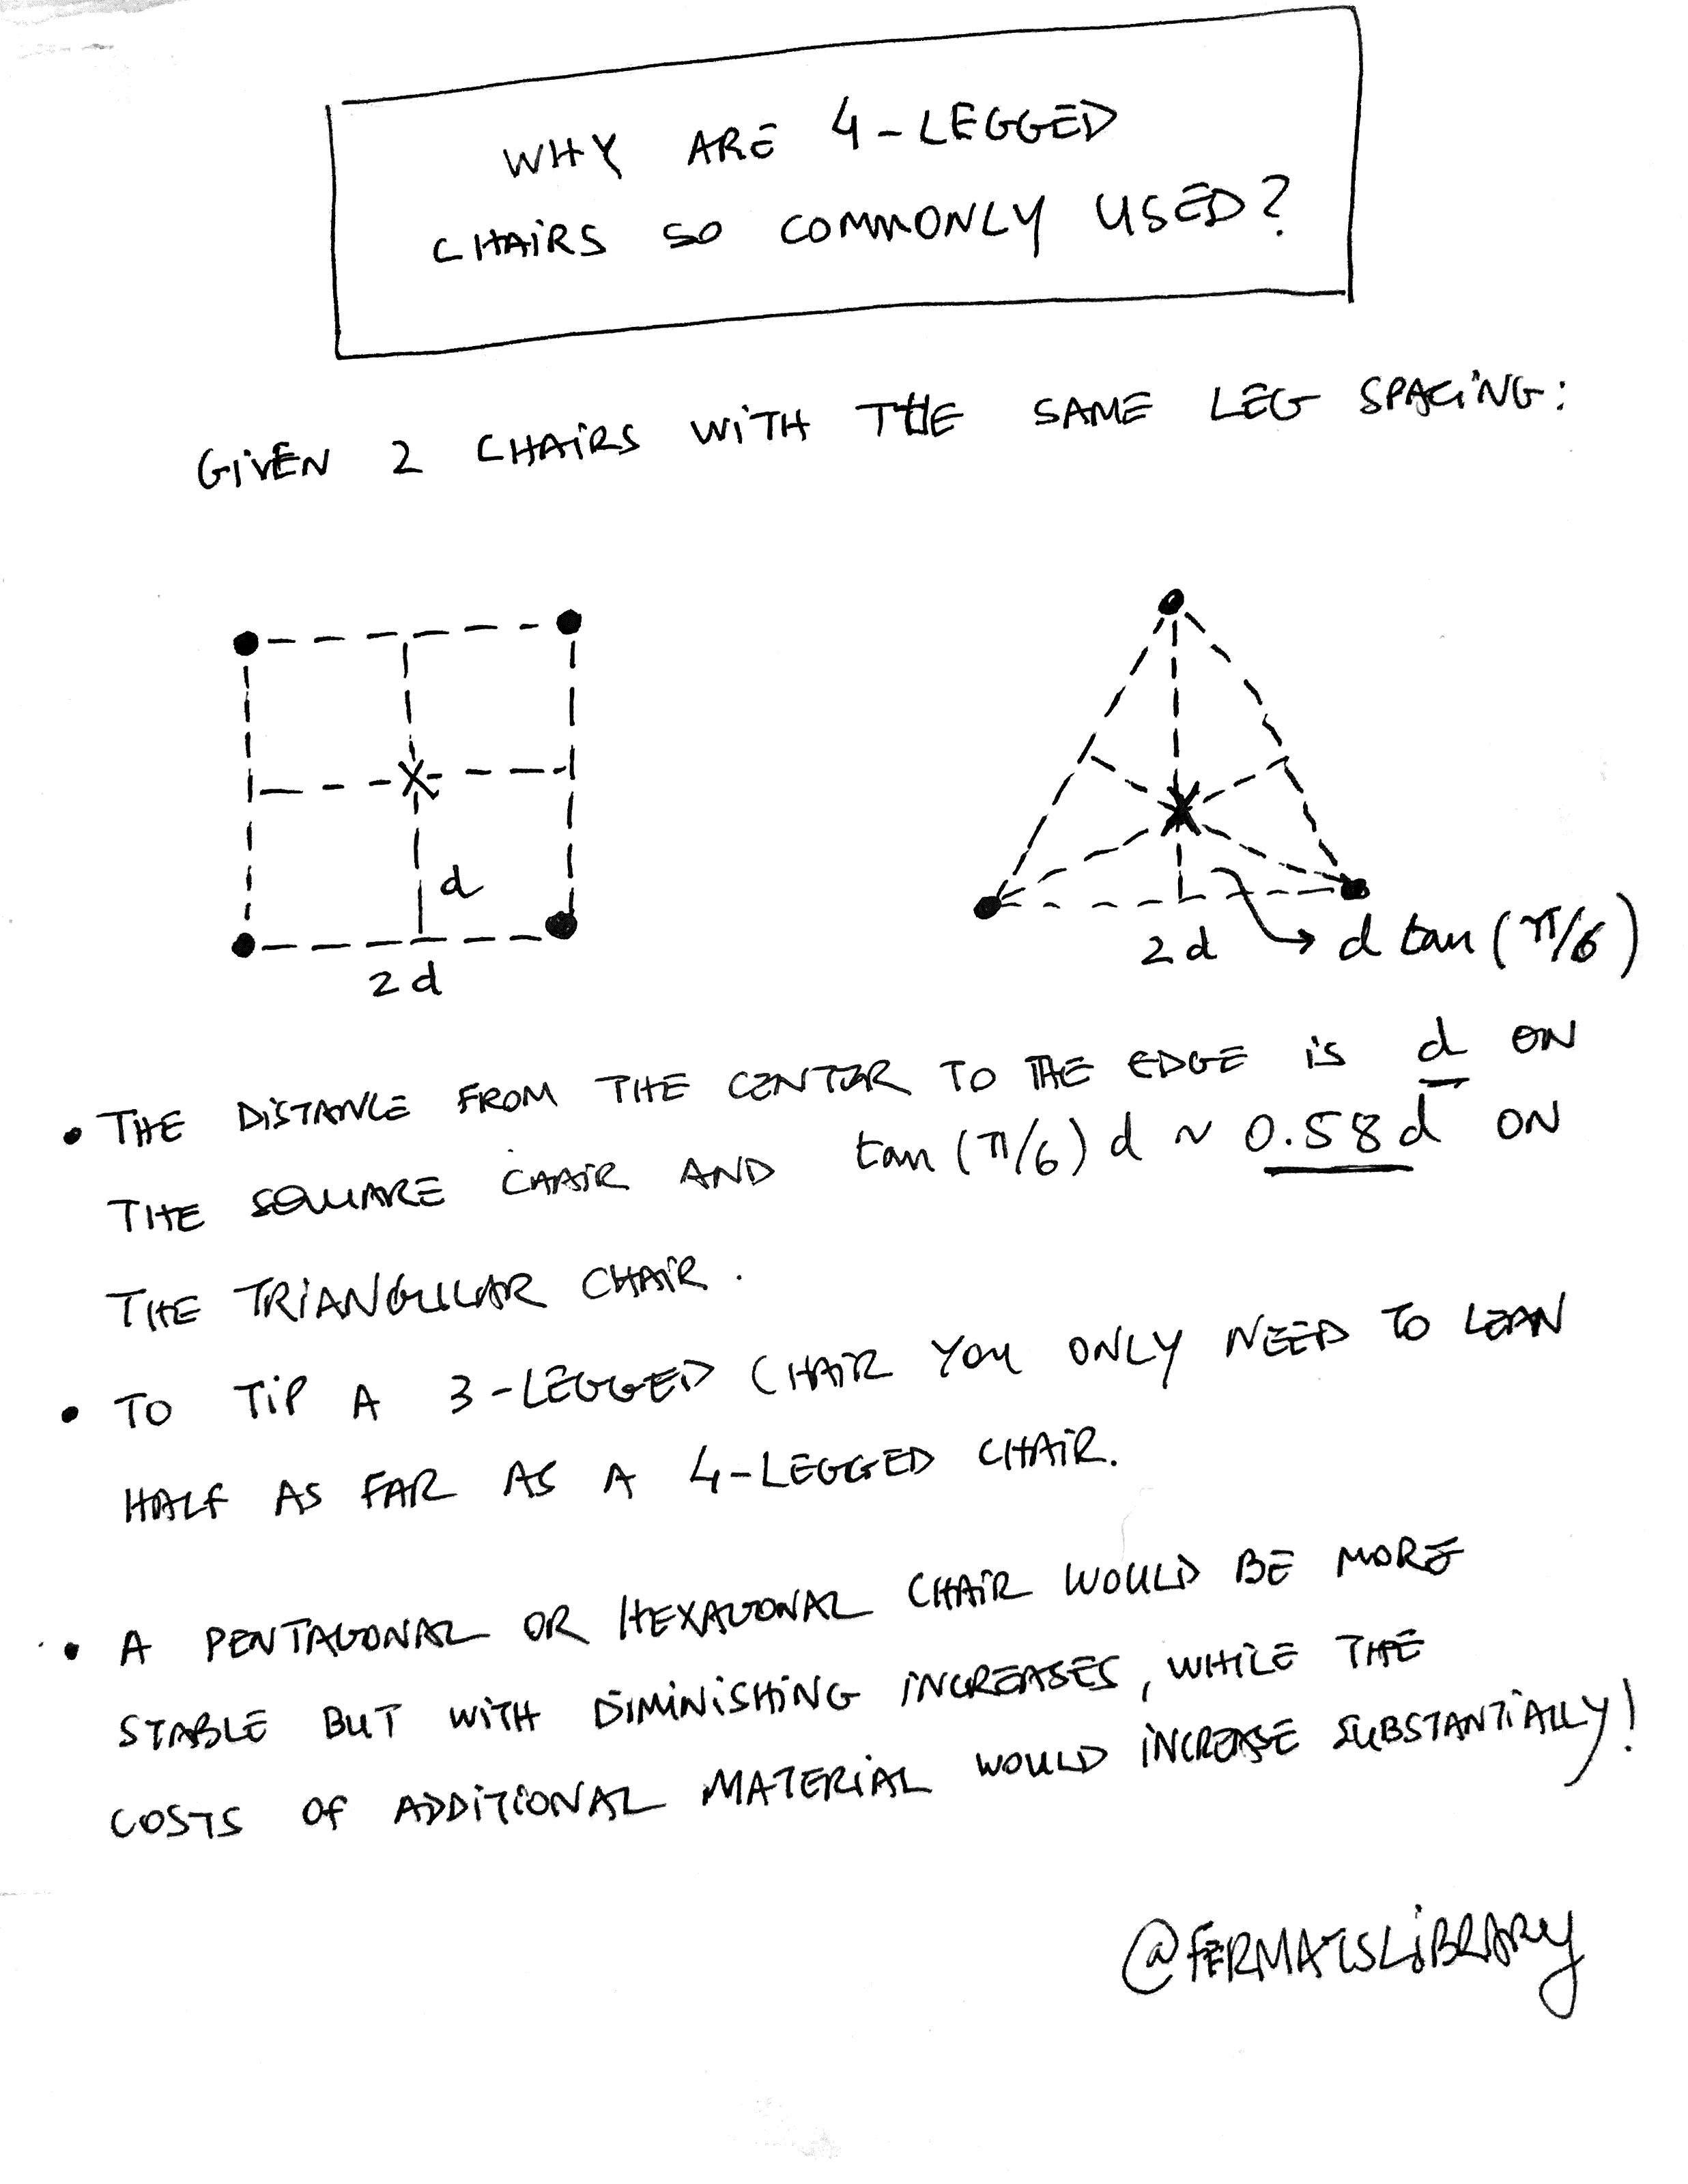 WHY ARE 4-LEGGED
CHAIRS SO COMMONLY USED?
GIVEN 2 CHAIRS WITH THE SAME LEG SPACING:
d
2d
2d
d tan(π/6)
• THE DISTANCE FROM THE CENTER TO THE EDGE IS d ON
THE SQUARE CHAIR AND tan(π/6) d ~ 0.58d ON
THE TRIANGULAR CHAIR.
• TO TIP A 3-LEGGED CHAIR YOU ONLY NEED TO LEAN
HALF AS FAR AS A 4-LEGGED CHAIR.
• A PENTAGONAL OR HEXAGONAL CHAIR WOULD BE MORE
STABLE BUT WITH DIMINISHING INCREASES, WHILE THE
COSTS OF ADDITIONAL MATERIAL WOULD INCREASE SUBSTANTIALLY!
@FERMATSLIBRARY